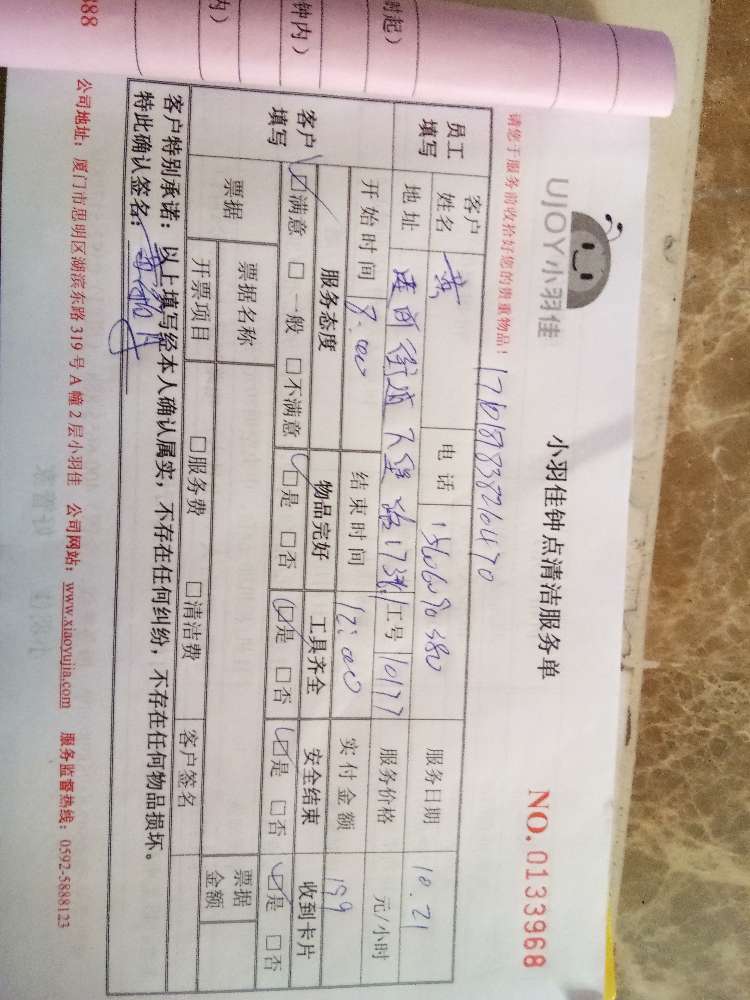 UJOY小羽佳
小羽佳钟点清洁服务单
NO. 0133968
请您于服务前收拾好您的贵重物品！
员工填写
客户姓名 黄 电话 服务日期 10.21
地址 工号 10177 服务价格 元/小时
开始时间 8:00 结束时间 12:00 实付金额 199
客户填写
服务态度 物品完好 工具齐全 安全结束 收到卡片
☑满意 □一般 □不满意 ☑是 □否 ☑是 □否 ☑是 □否 ☑是 □否
票据 票据名称 票据金额
开票项目 □服务费 □清洁费 客户签名
客户特别承诺：以上填写经本人确认属实，不存在任何纠纷，不存在任何物品损坏。
特此确认签名：
公司地址：厦门市思明区湖滨东路 319 号 A 幢 2 层小羽佳 公司网站：www.xiaoyujia.com 服务监督热线：0592-5888123
时起）
钟内）
内）
888